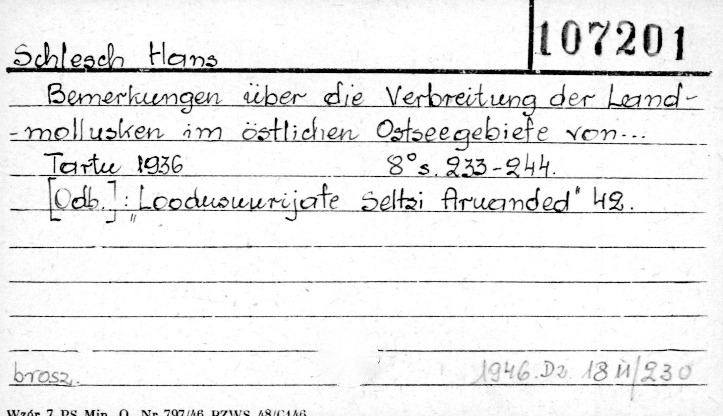 107201
Schlesch Hans
Bemerkungen über die Verbreitung der Land-
-mollusken im östlichen Ostseegebiete von...
Tartu 1936 8° s. 233-244.
[Odb.]: „Looduuurijate Seltzi Aruanded" 42.
brosz. 1946.Dz. 18 II/230
Wzór 7 PS Min. O. Nr 797/46 PZWS 48/C146